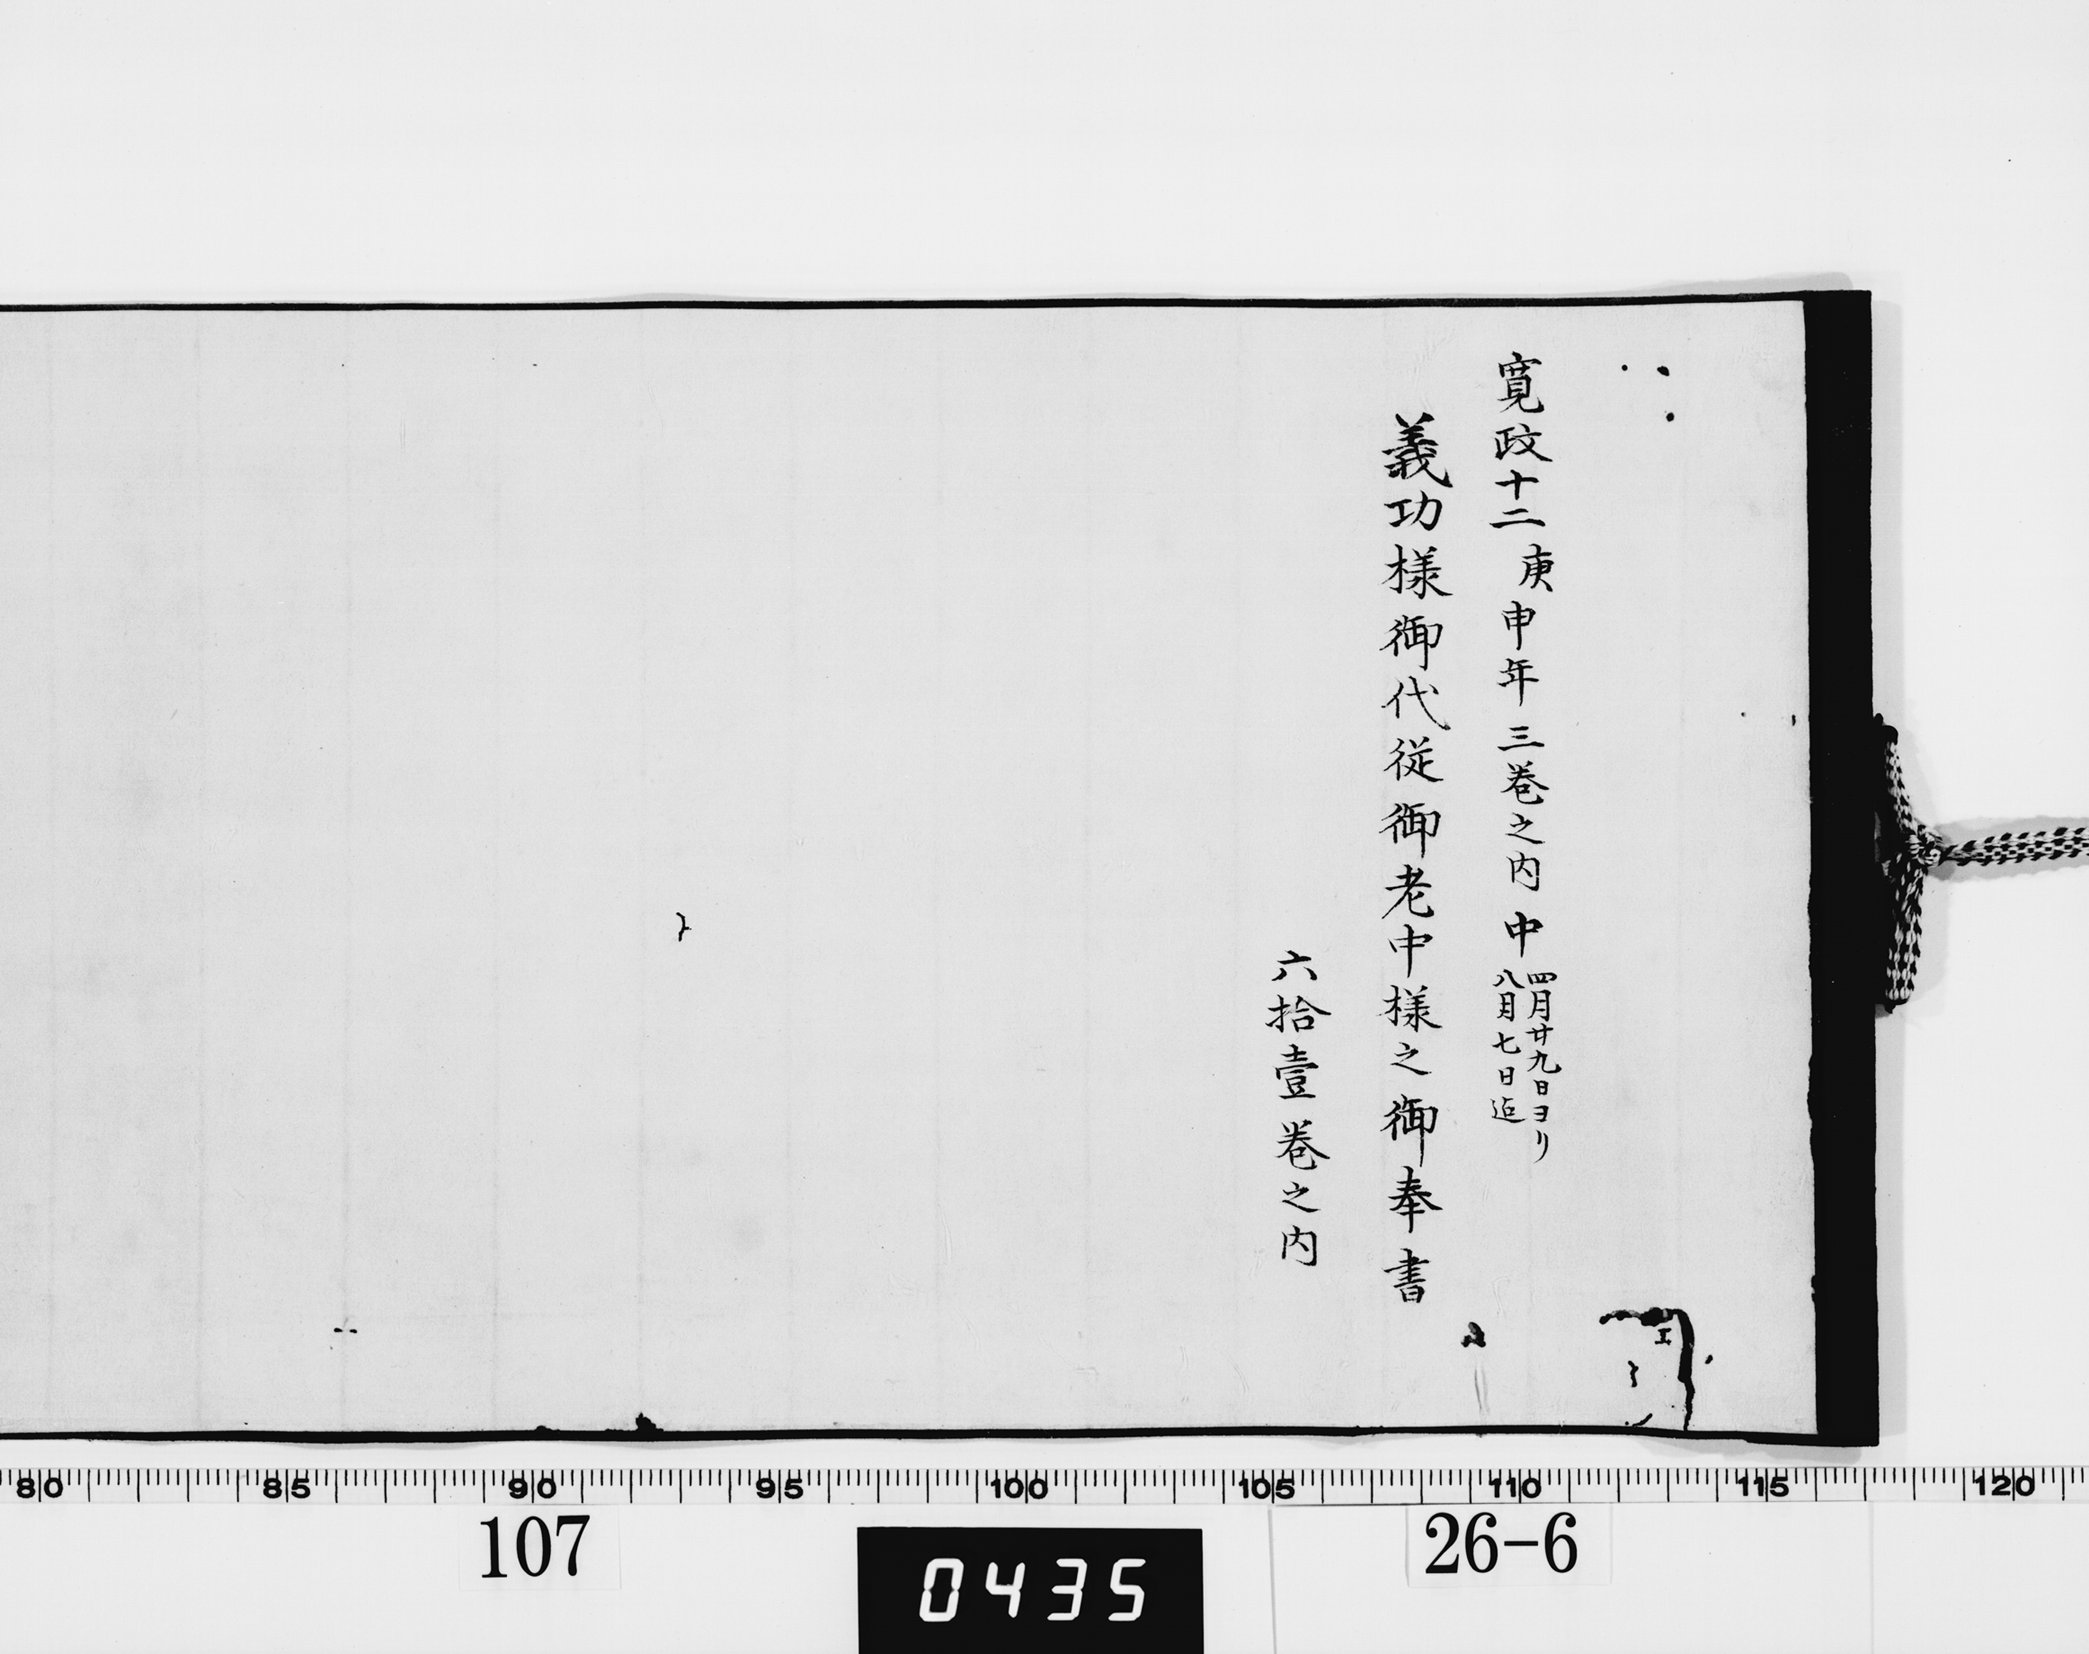 寛政十二庚申年三巻之内中
四月廿九日ヨリ
八月七日迄
義功様御代従御老中様之御奉書
六拾壹巻之内
80 85 90 95 100 105 110 115 120
107
0435
26-6